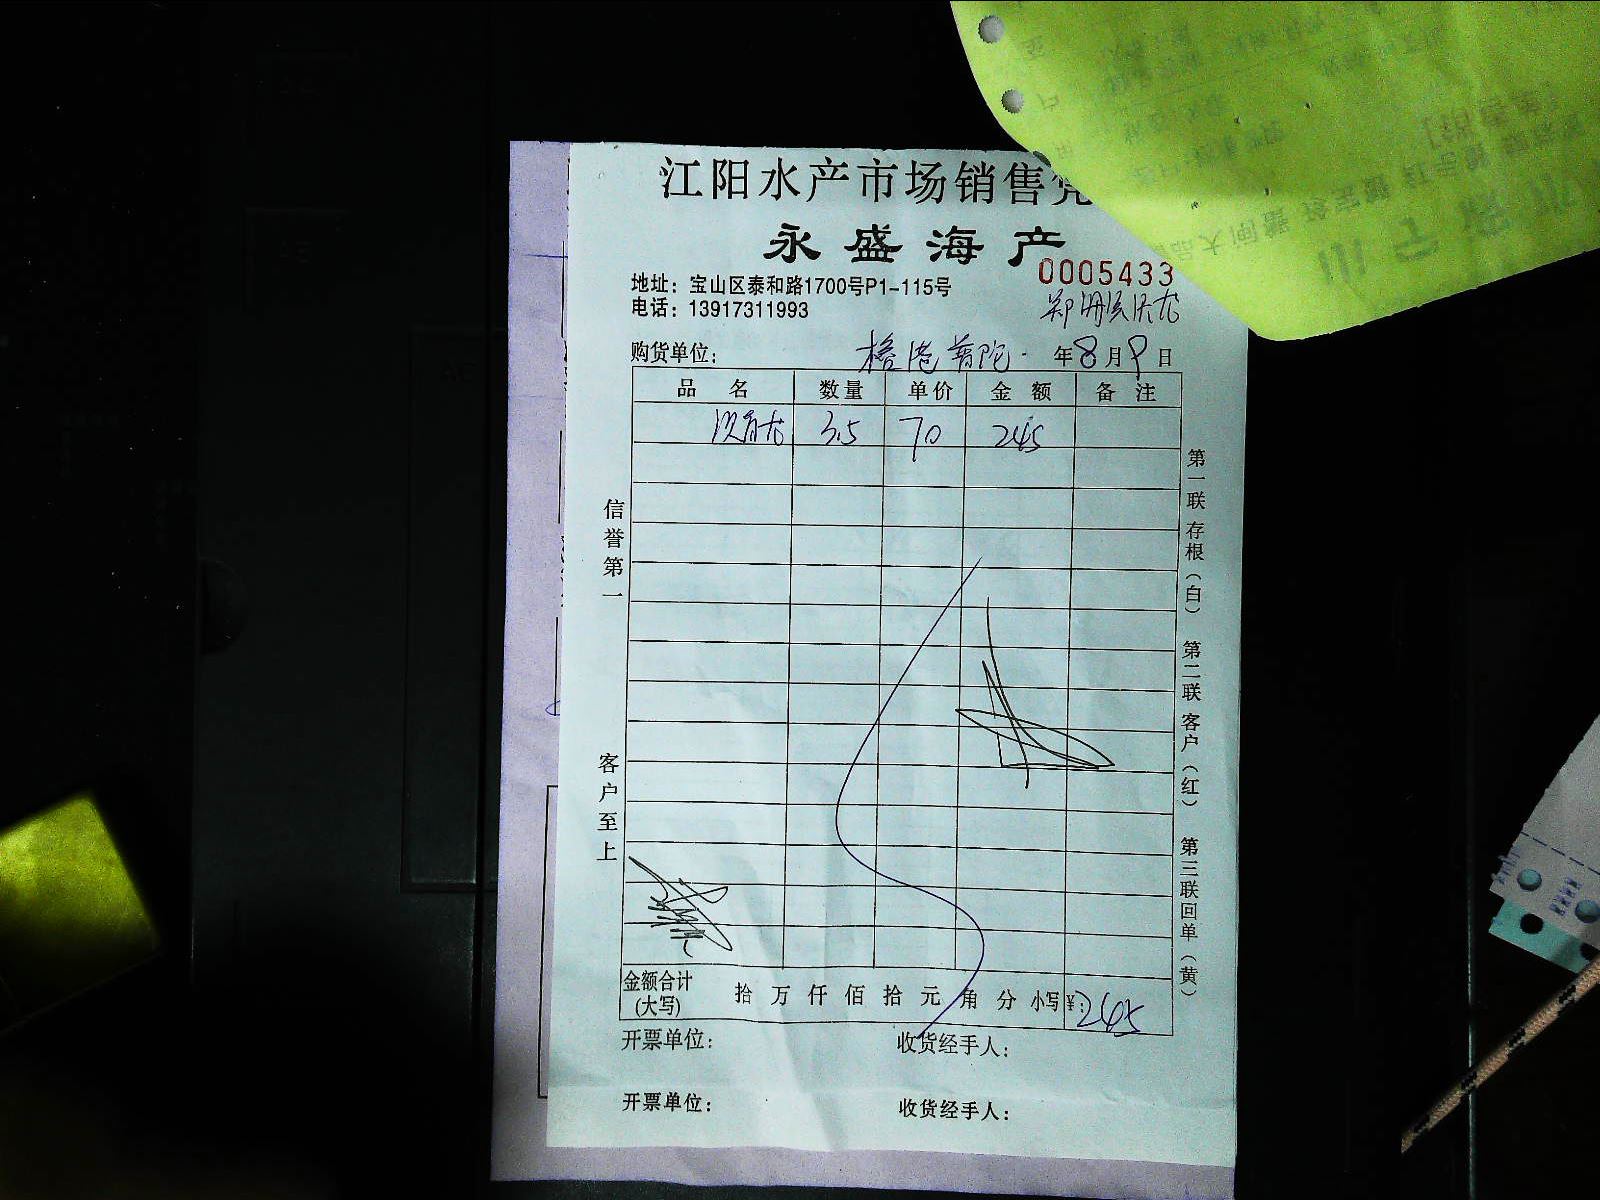 江阳水产市场销售凭
永盛海产
0005433
地址：宝山区泰和路1700号P1-115号
电话：13917311993
购货单位： 年8月9日
品名 数量 单价 金额 备注
3.5 70 245
信誉第一
客户至上
第一联存根（白）
第二联客户（红）
第三联回单（黄）
金额合计（大写） 拾万仟佰拾元角分 小写¥：245
开票单位： 收货经手人：
开票单位： 收货经手人：